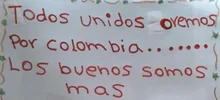 Todos unidos oremos
Por colombia.......
Los buenos somos
mas